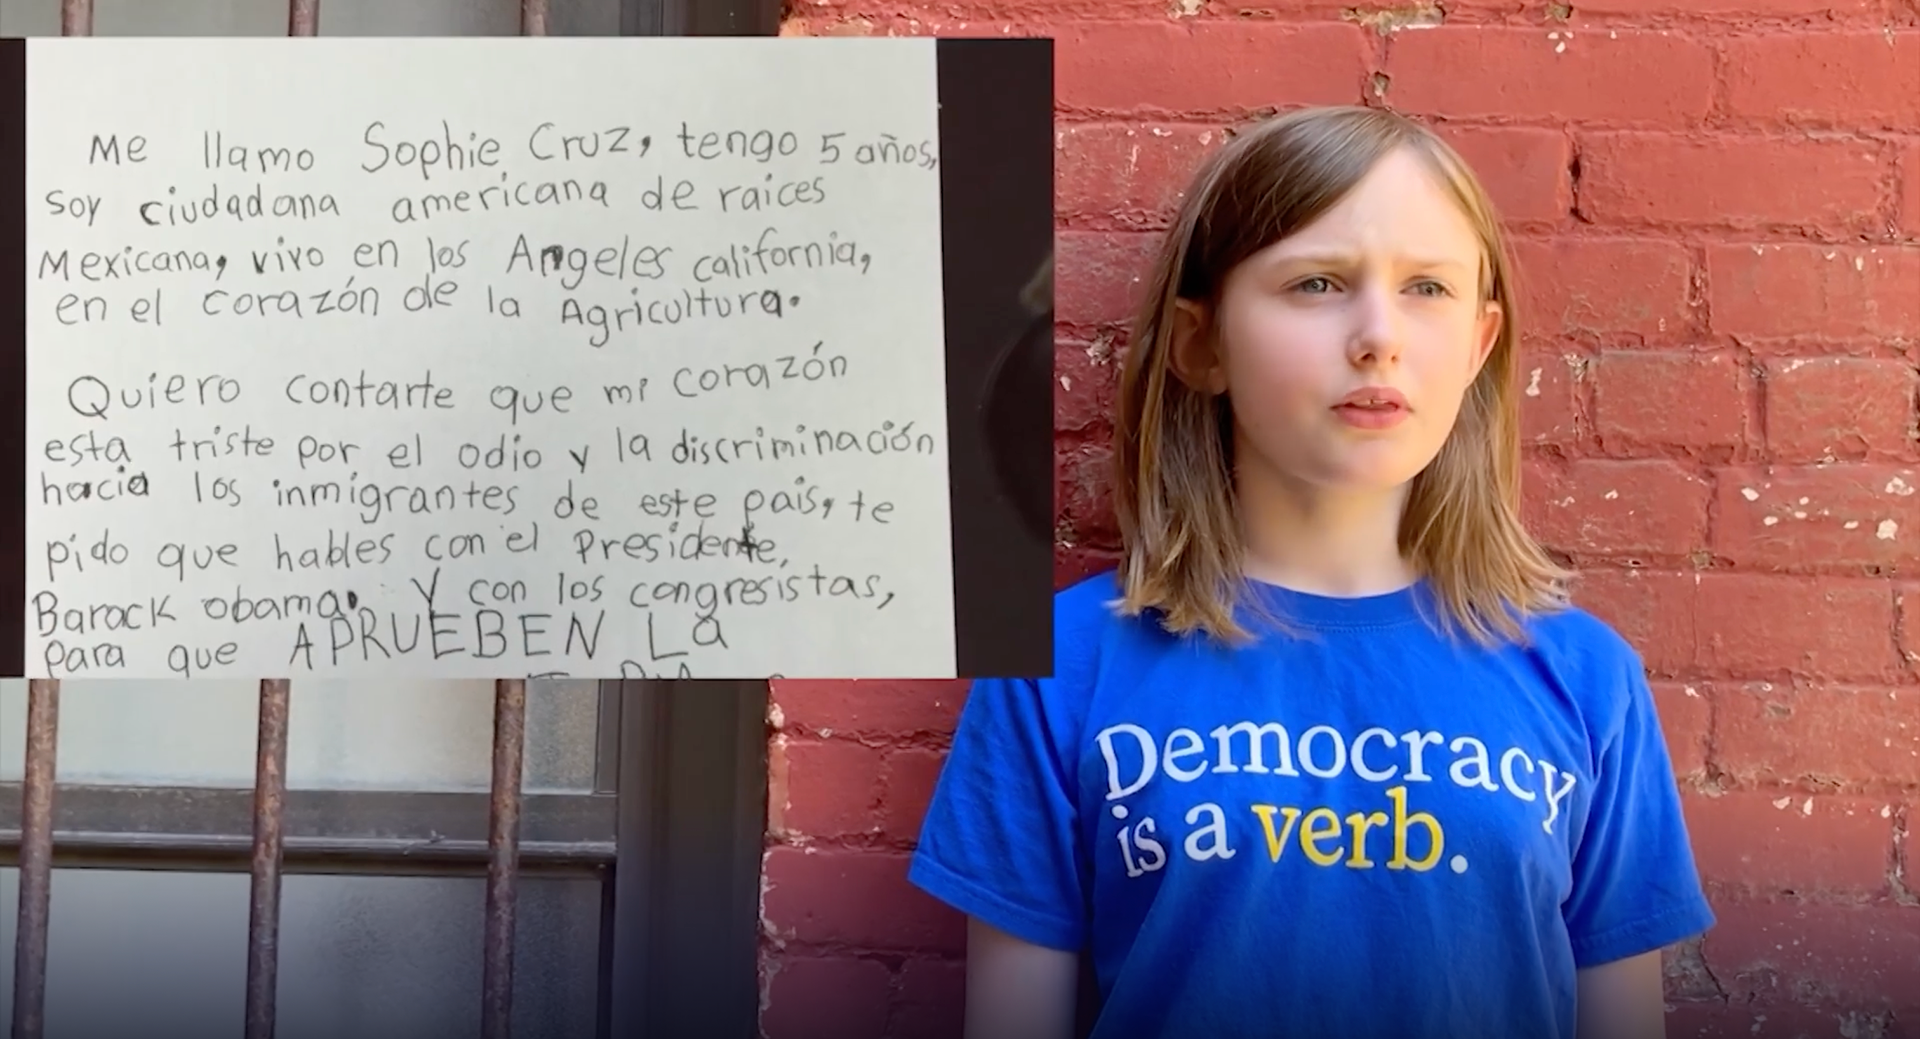 Me llamo Sophie Cruz, tengo 5 años,
soy ciudadana americana de raices
Mexicana, vivo en los Angeles california,
en el corazón de la Agricultura.
Quiero contarte que mi corazón
esta triste por el odio y la discriminación
hacia los inmigrantes de este pais, te
pido que hables con el Presidente,
Barack obama. Y con los congresistas,
para que APRUEBEN La
Democracy
is a verb.